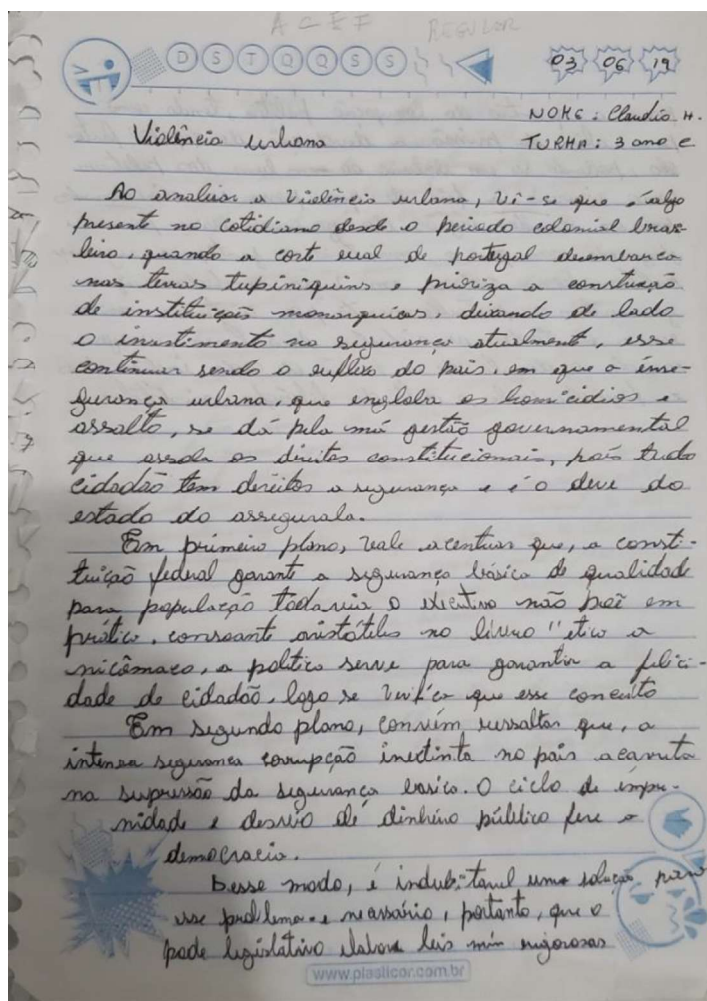 A C E F REGULAR
D S T Q Q S S 03 06 19
NOME: Claudio H.
Violência urbana TURMA: 3 ano C
Ao analisar a violência urbana, vê-se que é algo
presente no cotidiano desde o periodo colonial brasi-
leiro, quando a corte real de portugal desembarca
nas terras tupiniquins e prioriza a construção
de instituições monarquicas, deixando de lado
o investimento na segurança atualmente, esse
continuar sendo o reflexo do pais, em que a inse-
gurança urbana, que engloba os homicidios e
assalto, se dá pela má gestão governamental
que assola os direitos constitucionais, pois todo
cidadão tem direitos a segurança e é o deve do
estado do assegurala.
Em primeiro plano, vale acentuar que, a consti-
tuição federal garante a segurança básica de qualidade
para população todavia o executivo não poẽ em
prático, consoante aristóteles no livro "etica a
nicômaco, a politica serve para garantir a felici-
dade do cidadão, logo se verifica que esse conceito
Em segundo plano, convém ressaltar que, a
intensa segurança corrupção inextinta no pais acarreta
na supressão da segurança basica. O ciclo de impu-
nidade e desvio de dinheiro público fere a
democracia.
Desse modo, é indubitavel uma solução para
esse problema e necessário, portanto, que o
pode legislativo elabore leis mais rigorosas
www.plasticor.com.br